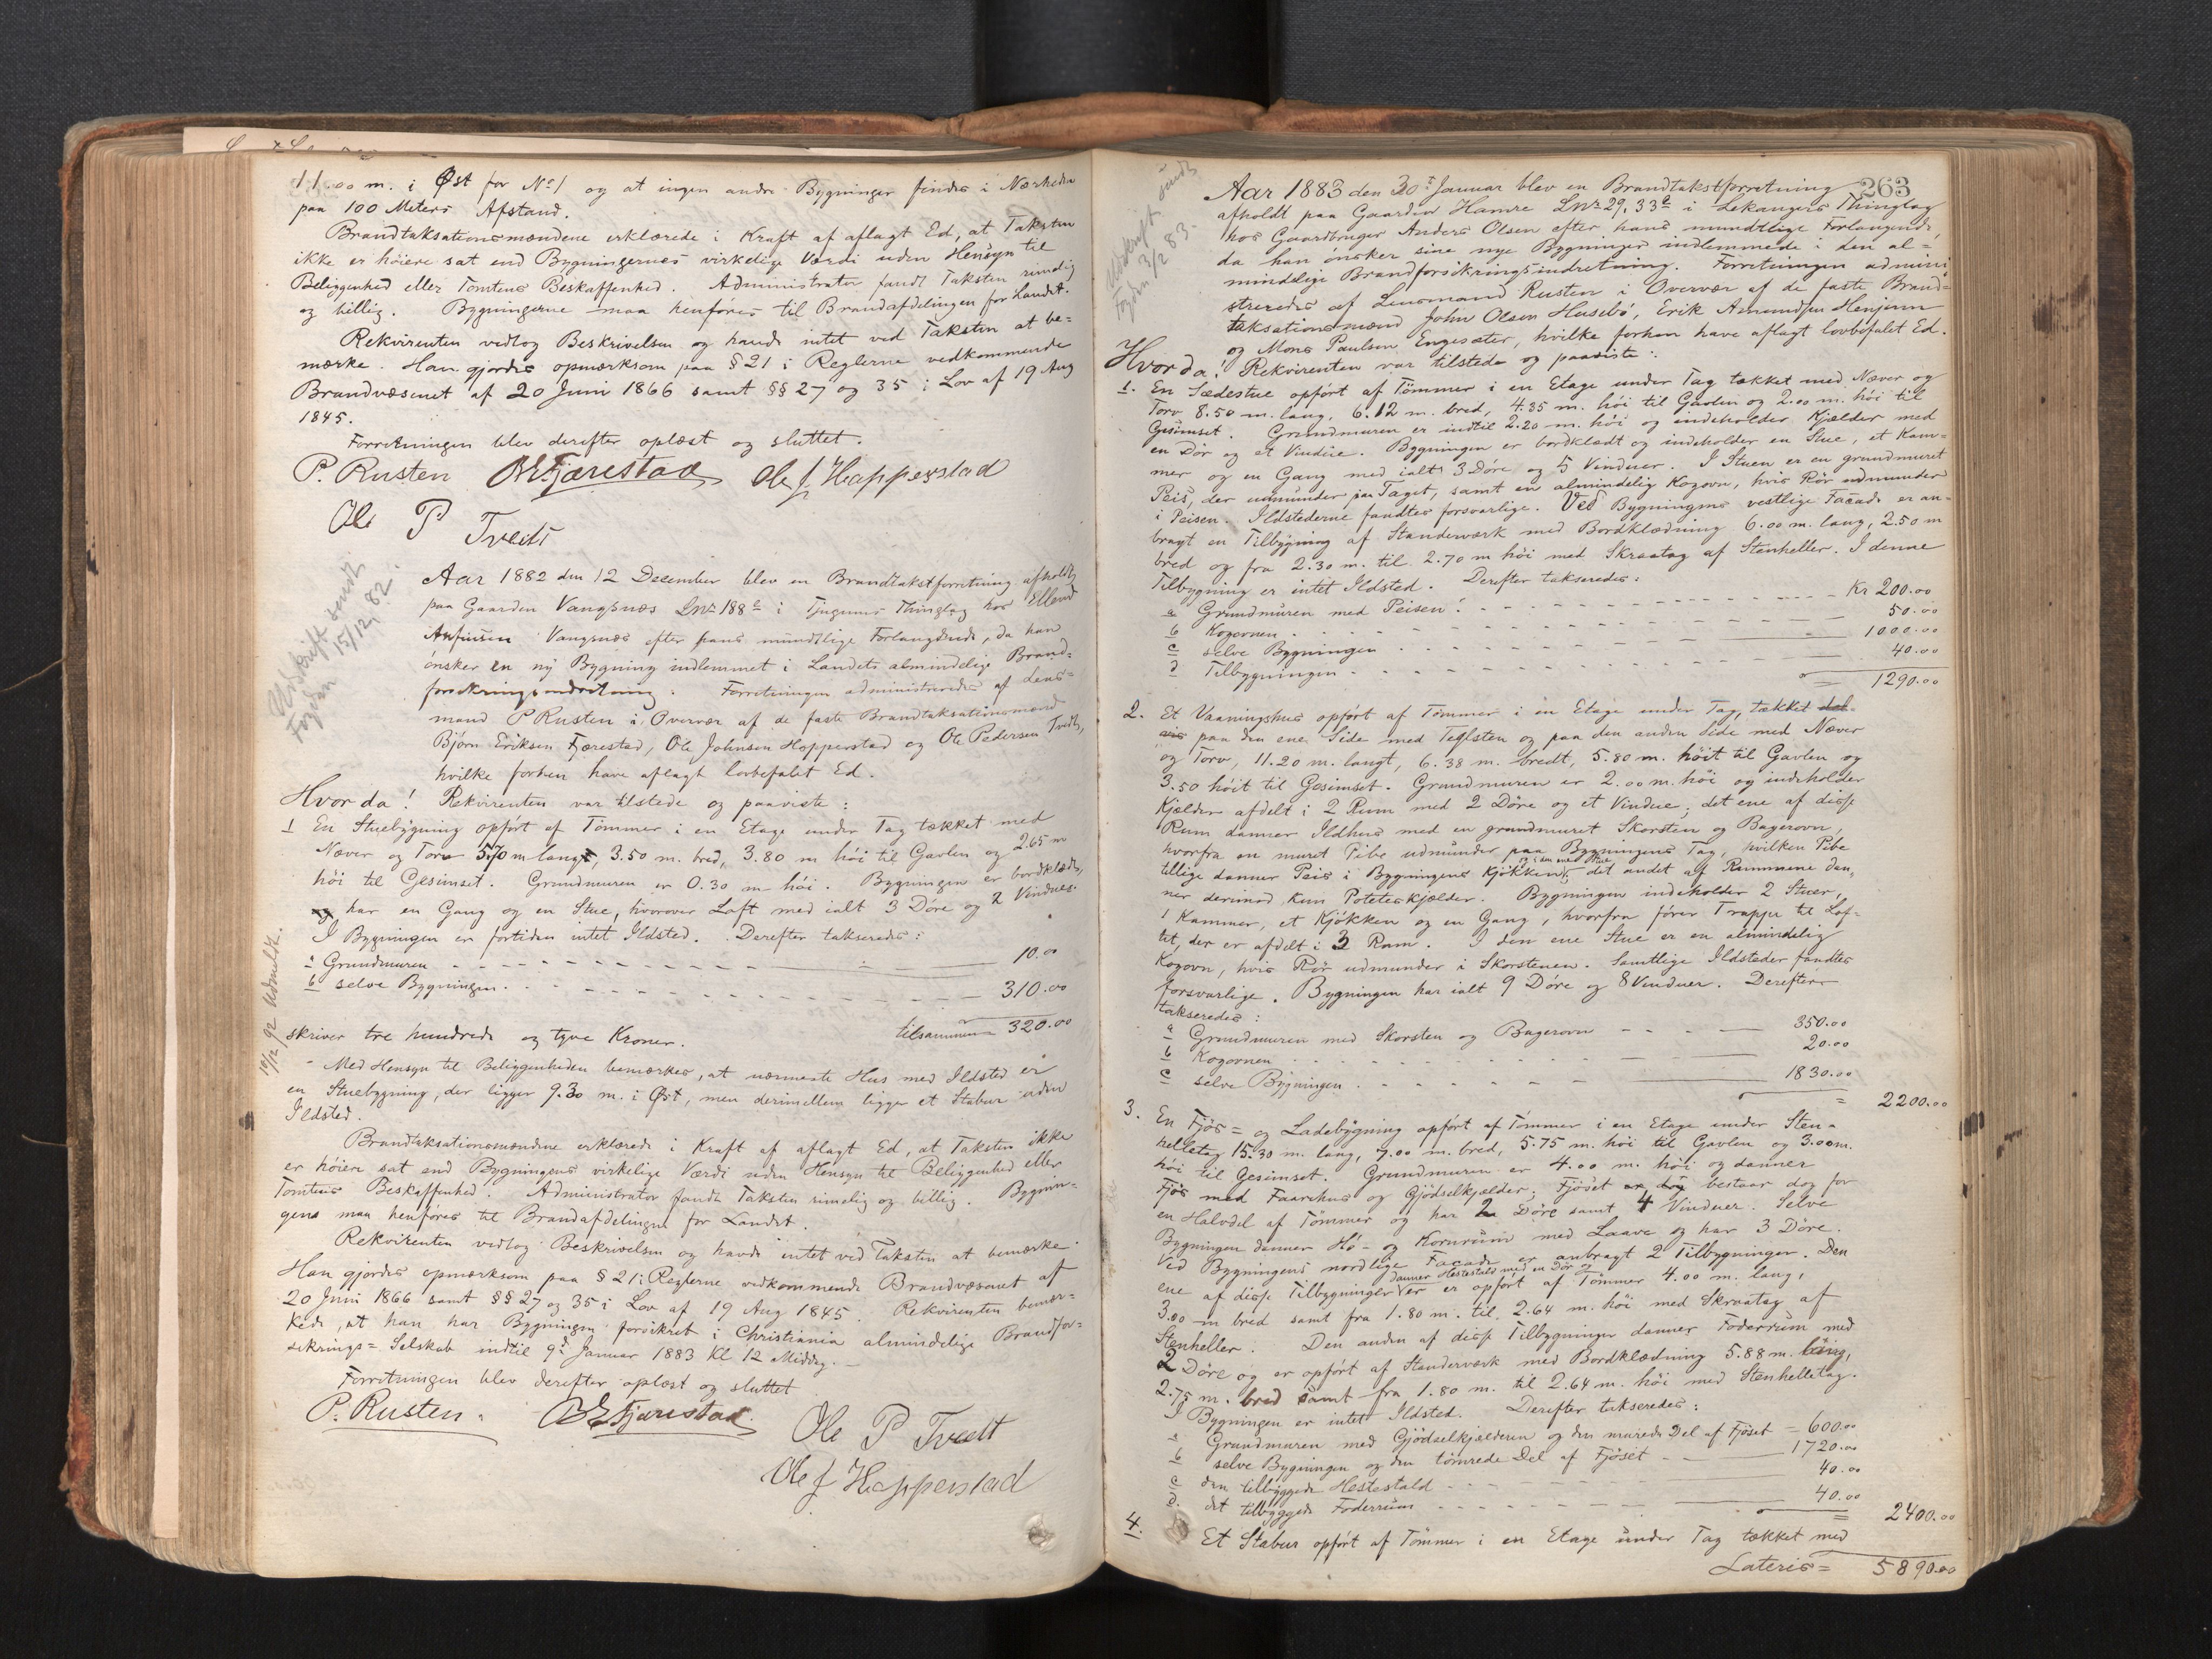 11.00 m. i Øst for No 1 og at ingen andre Bygninger findes i Nærheden
paa 100 Meters Afstand.
Brandtaksationsmændene erklærede i Kraft af aflagt Ed, at Taksten
ikke er höiere sat end Bygningernes virkelige Værdi uden Hensyn til
Beliggenhed eller Tomtens Beskaffenhed. Administrator fandt Taksten rimelig
og billig. Bygningerne maa henföres til Brandafdelingen for Landet.
Rekvirenten vedtog Beskrivelsen og havde intet ved Taksten at be=
mærke. Han gjordes opmærksom paa § 21 i Reglerne vedkommende
Brandvæsenet af 20 Juni 1866 samt §§ 27 og 35 i Lov af 19 Aug
1845.
Forretningen blev derefter oplæst og sluttet.
P. Rusten BEFjærestad Ole J Happerstad
Ole P Tvedt
Udskrift sendt
Fogden 15/12 82.
Aar 1882 den 12 December blev en Brandtakstforretning afholdt
paa Gaarden Vangsnæs Lnr 188 a i Tjugums Thinglag hos Ellend
Anfinsen Vangsnæs efter hans mundtlige Forlangende, da han
önsker en ny Bygning indlemmet i Landets almindelige Brand=
forsikringsindretning. Forretningen administreredes af Lens=
mand P Rusten i Overvær af de faste Brandtaksationsmænd
Björn Eriksen Fjærestad, Ole Johnsen Hopperstad og Ole Pedersen Tvedt,
hvilke forhen have aflagt lovbefalet Ed.
Hvor da! Rekvirenten var tilstede og paaviste:
1 En Stuebygning opfört af Tömmer i en Etage under Tag tækket med
Næver og Torv 5.70 m lang, 3.50 m. bred, 3.80 m höi til Gavlen og 2.65 m
höi til Gesimset. Grundmuren er 0.30 m höi. Bygningen er bordklædt,
og har en Gang og en Stue, hvorover Loft med ialt 3 Döre og 2 Vinduer.
I Bygningen er fortiden intet Ildsted. Derefter takseredes:
a Grundmuren 10.00
b selve Bygningen. 310.00
tilsammen 320.00
skriver tre hundrede og tyve Kroner.
19/12 92 Udmeldt.
Med Hensyn til Beliggenheden bemærkes, at nærmeste Hus med Ildsted er
en Stuebygning, der ligger 9.30 m. i Øst, men derimellem ligger et Stabur uden
Ildsted.
Brandtaksationsmændene erklærede i Kraft af aflagt Ed, at Taksten ikke
er höiere sat end Bygningens virkelige Værdi uden Hensyn til Beliggenhed eller
Tomtens Beskaffenhed. Administrator fandt Taksten rimelig og billig. Bygnin=
gens maa henföres til Brandafdelingen for Landet.
Rekvirenten vedtog Beskrivelsen og havde intet ved Taksten at bemærke.
Han gjordes opmærksom paa § 21 i Reglerne vedkommende Brandvæsenet af
20 Juni 1866 samt §§ 27 og 35 i Lov af 19 Aug 1845. Rekvirenten bemær=
kede, at han har Bygningen forsikret i Christiania almindelige Brandfor=
sikrings=Selskab indtil 9de Januar 1883 Kl 12 Middag.
Forretningen blev derefter oplæst og sluttet
P. Rusten. BEFjærestad.
Ole P Tvedt
Ole J Happerstad
263
Udskrift sendt
Fogden 3/2 83.
Aar 1883 den 30te Januar blev en Brandtakstforretning
afholdt paa Gaarden Hamre Lnr 29, 33 a i Lekangers Thinglag
hos Gaardbruger Anders Olsen efter hans mundtlige Forlangende,
da han önsker sine nye Bygninger indlemmede i den al=
mindelige Brandforsikringsindretning. Forretningen admini
streredes af Lensmand Rusten i Overvær af de faste Brand=
taksationsmænd John Olsen Husebö, Erik Amundsen Henjum
og Mons Paulsen Engesæter, hvilke forhen have aflagt lovbefalet Ed.
Hvor da! Rekvirenten var tilstede og paaviste:
1. En Sædestue opfört af Tömmer i en Etage under Tag tækket med Næver og
Torv 8.50 m. lang, 6.12 m. bred, 4.35 m. höi til Gavlen og 2.00 m. höi til
Gesimset. Grundmuren er indtil 2.20 m. höi og indeholder Kjælder med
en Dör og et Vindue. Bygningen er bordklædt og indeholder en Stue, et Kam=
mer og en Gang med ialt 3 Döre og 5 Vinduer. I Stuen er en grundmuret
Peis, der udmunder paa Taget, samt en almindelig Kogovn, hvis Rör udmunder
i Peisen. Ildstederne fandtes forsvarlige. Ved Bygningens vestlige Facade er an=
bragt en Tilbygning af Standerværk med Bordklædning 6.00 m. lang, 2.50 m
bred og fra 2.30 m. til 2.70 m höi med Skraatag af Stenheller. I denne
Tilbygning er intet Ildsted. Derefter takseredes:
a Grundmuren med Peisen. Kr 200.00
b Kogovnen 50.00
c selve Bygningen 1000.00
d Tilbygningen 40.00
= 1290.00
2. Et Vaaningshus opfört af Tömmer i en Etage under Tag, tækket del=
vis paa den ene Side med Teglsten og paa den anden Side med Næver
og Torv, 11.20 m. langt, 6.38 m. bredt, 5.80 m. höit til Gavlen og
3.50 höit til Gesimset. Grundmuren er 2.00 m. höi og indeholder
Kjælder afdelt i 2 Rum med 2 Döre og et Vindue; det ene af disse
Rum danner Ildhus med en grundmuret Skorsten og Bagerovn,
hvorfra en muret Pibe udmunder paa Bygningens Tag, hvilken Pibe
tillige danner Peis i Bygningens Kjökken og i den ene Stue; det andet af Rummene dan=
ner derimod kun Poteteskjælder. Bygningen indeholder 2 Stuer,
1 Kammer, et Kjökken og en Gang, hvorfra förer Trappe til Lof=
tet, der er afdelt i 3 Rum. I den ene Stue er en almindelig
Kogovn, hvis Rör udmunder i Skorstenen. Samtlige Ildsteder fandtes
forsvarlige. Bygningen har ialt 9 Döre og 8 Vinduer. Derefter
takseredes:
a Grundmuren med Skorsten og Bagerovn 350.00
b Kogovnen 20.00
c selve Bygningen 1830.00
= 2200.00
3. En Fjös= og Ladebygning opfört af Tömmer i en Etage under Sten=
helletag 15.30 m. lang, 7.00 m. bred, 5.75 m. höi til Gavlen og 3.00 m.
höi til Gesimset. Grundmuren er 4.00 m. höi og danner
Fjös med Faarehus og Gjödselkjælder; Fjöset er dog bestaar dog for
en Halvdel af Tömmer og har 2 Döre samt 4 Vinduer. Selve
Bygningen danner Hö= og Kornrum med Laave og har 3 Döre.
Ved Bygningens nordlige Facade er anbragt 2 Tilbygninger. Den
ene af disse Tilbygninger danner Hestestald med en Dör og er opfört af Tömmer 4.00 m. lang,
3.00 m bred samt fra 1.80 m. til 2.64 m. höi med Skraatag af
Stenheller. Den anden af disse Tilbygninger danner Foderrum med
2 Döre og er opfört af Standerværk med Bordklædning 5.88 m. lang,
2.75 m. bred samt fra 1.80 m. til 2.64 m. höi med Stenhelletag.
I Bygningen er intet Ildsted. Derefter takseredes:
a Grundmuren med Gjödselkjælderen og den murede Del af Fjöset = 600.00
b selve Bygningen og den tömrede Del af Fjöset 1720.00
c den tilbyggede Hestestald 40.00
d. det tilbyggede Foderrum 40.00
= 2400.00
4. Et Stabur opfört af Tömmer i en Etage under Tag tækket med
Lateris = 5890.00